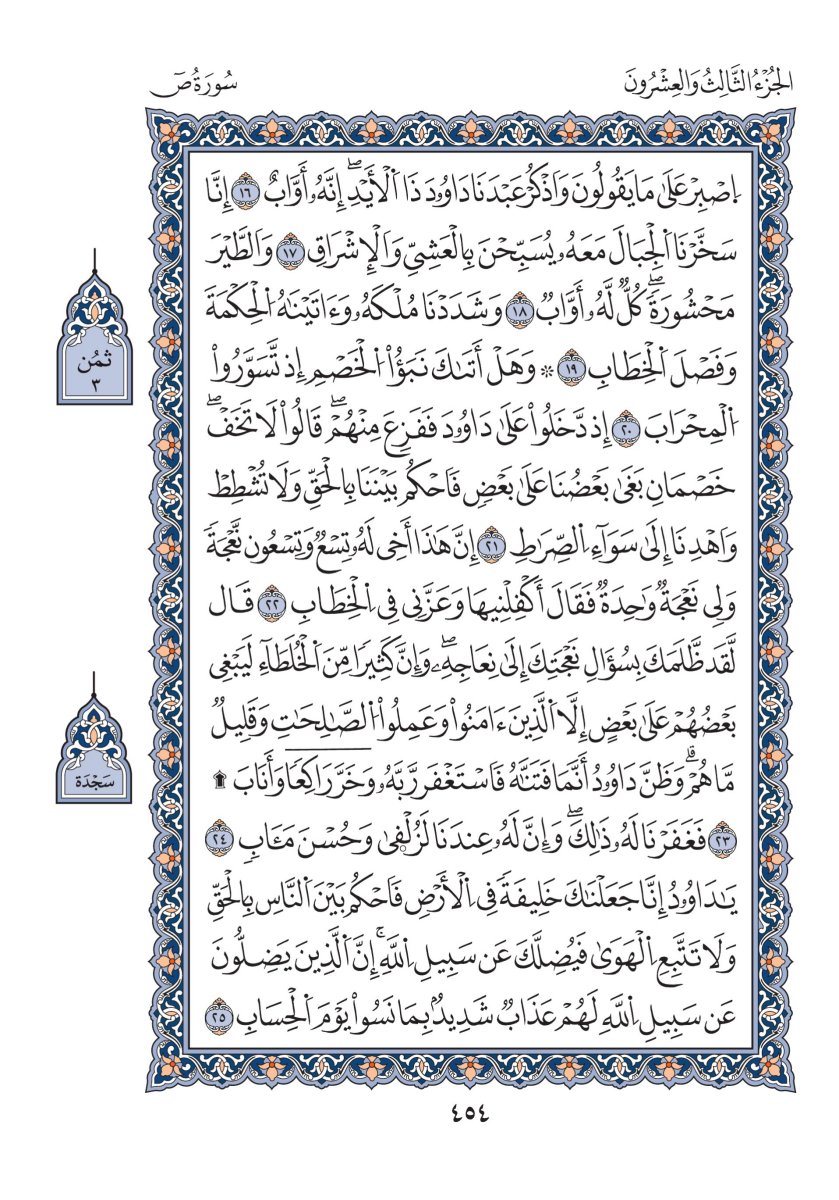 الجُزْءُ الثَّالِثُ وَالعِشْرُونَ
سُورَةُ صٓ
اِ۪صْبِرْ عَلَىٰ مَا يَقُولُونَ وَاَذْكُرْ عَبْدَنَا دَاوُۥدَ ذَا اَ۬لْأَيْدِۖ إِنَّهُۥٓ أَوَّابٌ ١٦ إِنَّا
سَخَّرْنَا اَ۬لْجِبَالَ مَعَهُۥ يُسَبِّحْنَ بِالْعَشِيِّ وَالْإِشْرَاقِ ١٧ وَالطَّيْرَ
مَحْشُورَةٗۖ كُلّٞ لَّهُۥٓ أَوَّابٞ ١٨ وَشَدَدْنَا مُلْكَهُۥ وَءَاتَيْنَٰهُ اُ۬لْحِكْمَةَ
وَفَصْلَ اَ۬لْخِطَابِ ١٩ ۞ وَهَلْ أَتَىٰكَ نَبَؤُاْ اُ۬لْخَصْمِ إِذ تَّسَوَّرُواْ
اُ۬لْمِحْرَابَ ٢٠ إِذ دَّخَلُواْ عَلَىٰ دَاوُۥدَ فَفَزِعَ مِنْهُمْۖ قَالُواْ لَا تَخَفْۖ
خَصْمَانِ بَغَىٰ بَعْضُنَا عَلَىٰ بَعْضٖ فَاحْكُم بَيْنَنَا بِالْحَقِّ وَلَا تُشْطِطْ
وَاَهْدِنَا إِلَىٰ سَوَآءِ اِ۬لصِّرَٰطِ ٢١ إِنَّ هَٰذَا أَخِى لَهُۥ تِسْعٞ وَتِسْعُونَ نَعْجَةٗ
وَلِى نَعْجَةٞ وَٰحِدَةٞ فَقَالَ أَكْفِلْنِيهَا وَعَزَّنِى فِى اِ۬لْخِطَابِ ٢٢ قَال
لَّقَد ظَّلَمَكَ بِسُؤَالِ نَعْجَتِكَ إِلَىٰ نِعَاجِهِۦۖ وَإِنَّ كَثِيرٗا مِّنَ اَ۬لْخُلَطَآءِ لَيَبْغِى
بَعْضُهُمْ عَلَىٰ بَعْضٍ إِلَّا اَ۬لَّذِينَ ءَامَنُواْ وَعَمِلُواْ اُ۬لصَّٰلِحَٰتِ وَقَلِيلٞ
مَّا هُمْۗ وَظَنَّ دَاوُۥدُ أَنَّمَا فَتَنَّٰهُ فَاسْتَغْفَر رَّبَّهُۥ وَخَرَّ رَاكِعٗا وَأَنَابَ ۩
٢٣ فَغَفَرْنَا لَهُۥ ذَٰلِكَۖ وَإِنَّ لَهُۥ عِندَنَا لَزُلْفَىٰ وَحُسْنَ مَـَٔابٖ ٢٤
يَٰدَاوُۥدُ إِنَّا جَعَلْنَٰكَ خَلِيفَةٗ فِى اِ۬لْأَرْضِ فَاحْكُم بَيْنَ اَ۬لنَّاسِ بِالْحَقِّ
وَلَا تَتَّبِعِ اِ۬لْهَوَىٰ فَيُضِلَّكَ عَن سَبِيلِ اِ۬للَّهِۚ إِنَّ اَ۬لَّذِينَ يَضِلُّونَ
عَن سَبِيلِ اِ۬للَّهِ لَهُمْ عَذَابٞ شَدِيدُۢ بِمَا نَسُواْ يَوْمَ اَ۬لْحِسَابِ ٢٥
ثُمُن
٣
سَجْدَة
٤٥٤